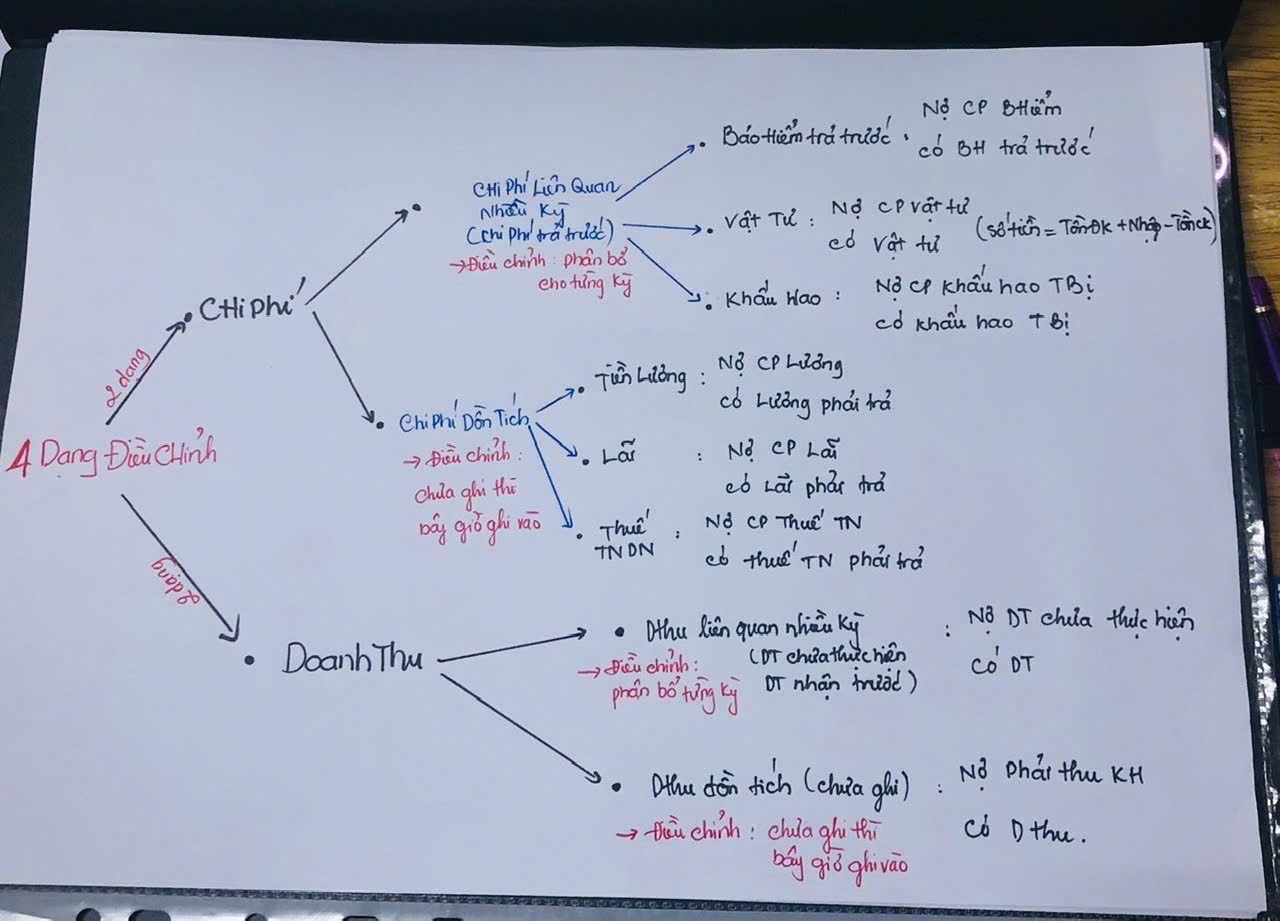 4 Dạng Điều CHỉnh
2 dạng
CHi Phí
CHi Phí Liên Quan
Nhiều Kỳ
(Chi Phí trả trước)
→ Điều chỉnh : phân bổ
cho từng kỳ
Bảo Hiểm trả trước :
Nợ CP BHiểm
có BH trả trước
Vật Tư :
Nợ CP Vật tư
có Vật tư
(số tiền = TồnĐK + Nhập - Tồn CK)
Khấu Hao :
Nợ CP Khấu hao TBị
có khấu hao TBị
Chi Phí Dồn Tích
→ Điều chỉnh :
chưa ghi thì
bây giờ ghi vào
Tiền Lương :
Nợ CP Lương
có Lương phải trả
Lãi :
Nợ CP Lãi
có Lãi phải trả
Thuế
TNDN :
Nợ CP Thuế TN
có thuế TN phải trả
2 dạng
Doanh Thu
Dthu liên quan nhiều kỳ
(DT chưa thực hiện
DT nhận trước)
→ Điều chỉnh :
phân bổ từng kỳ
: Nợ DT chưa thực hiện
Có DT
Dthu dồn tích (chưa ghi) :
→ Điều chỉnh : chưa ghi thì
bây giờ ghi vào
Nợ Phải thu KH
Có D thu.